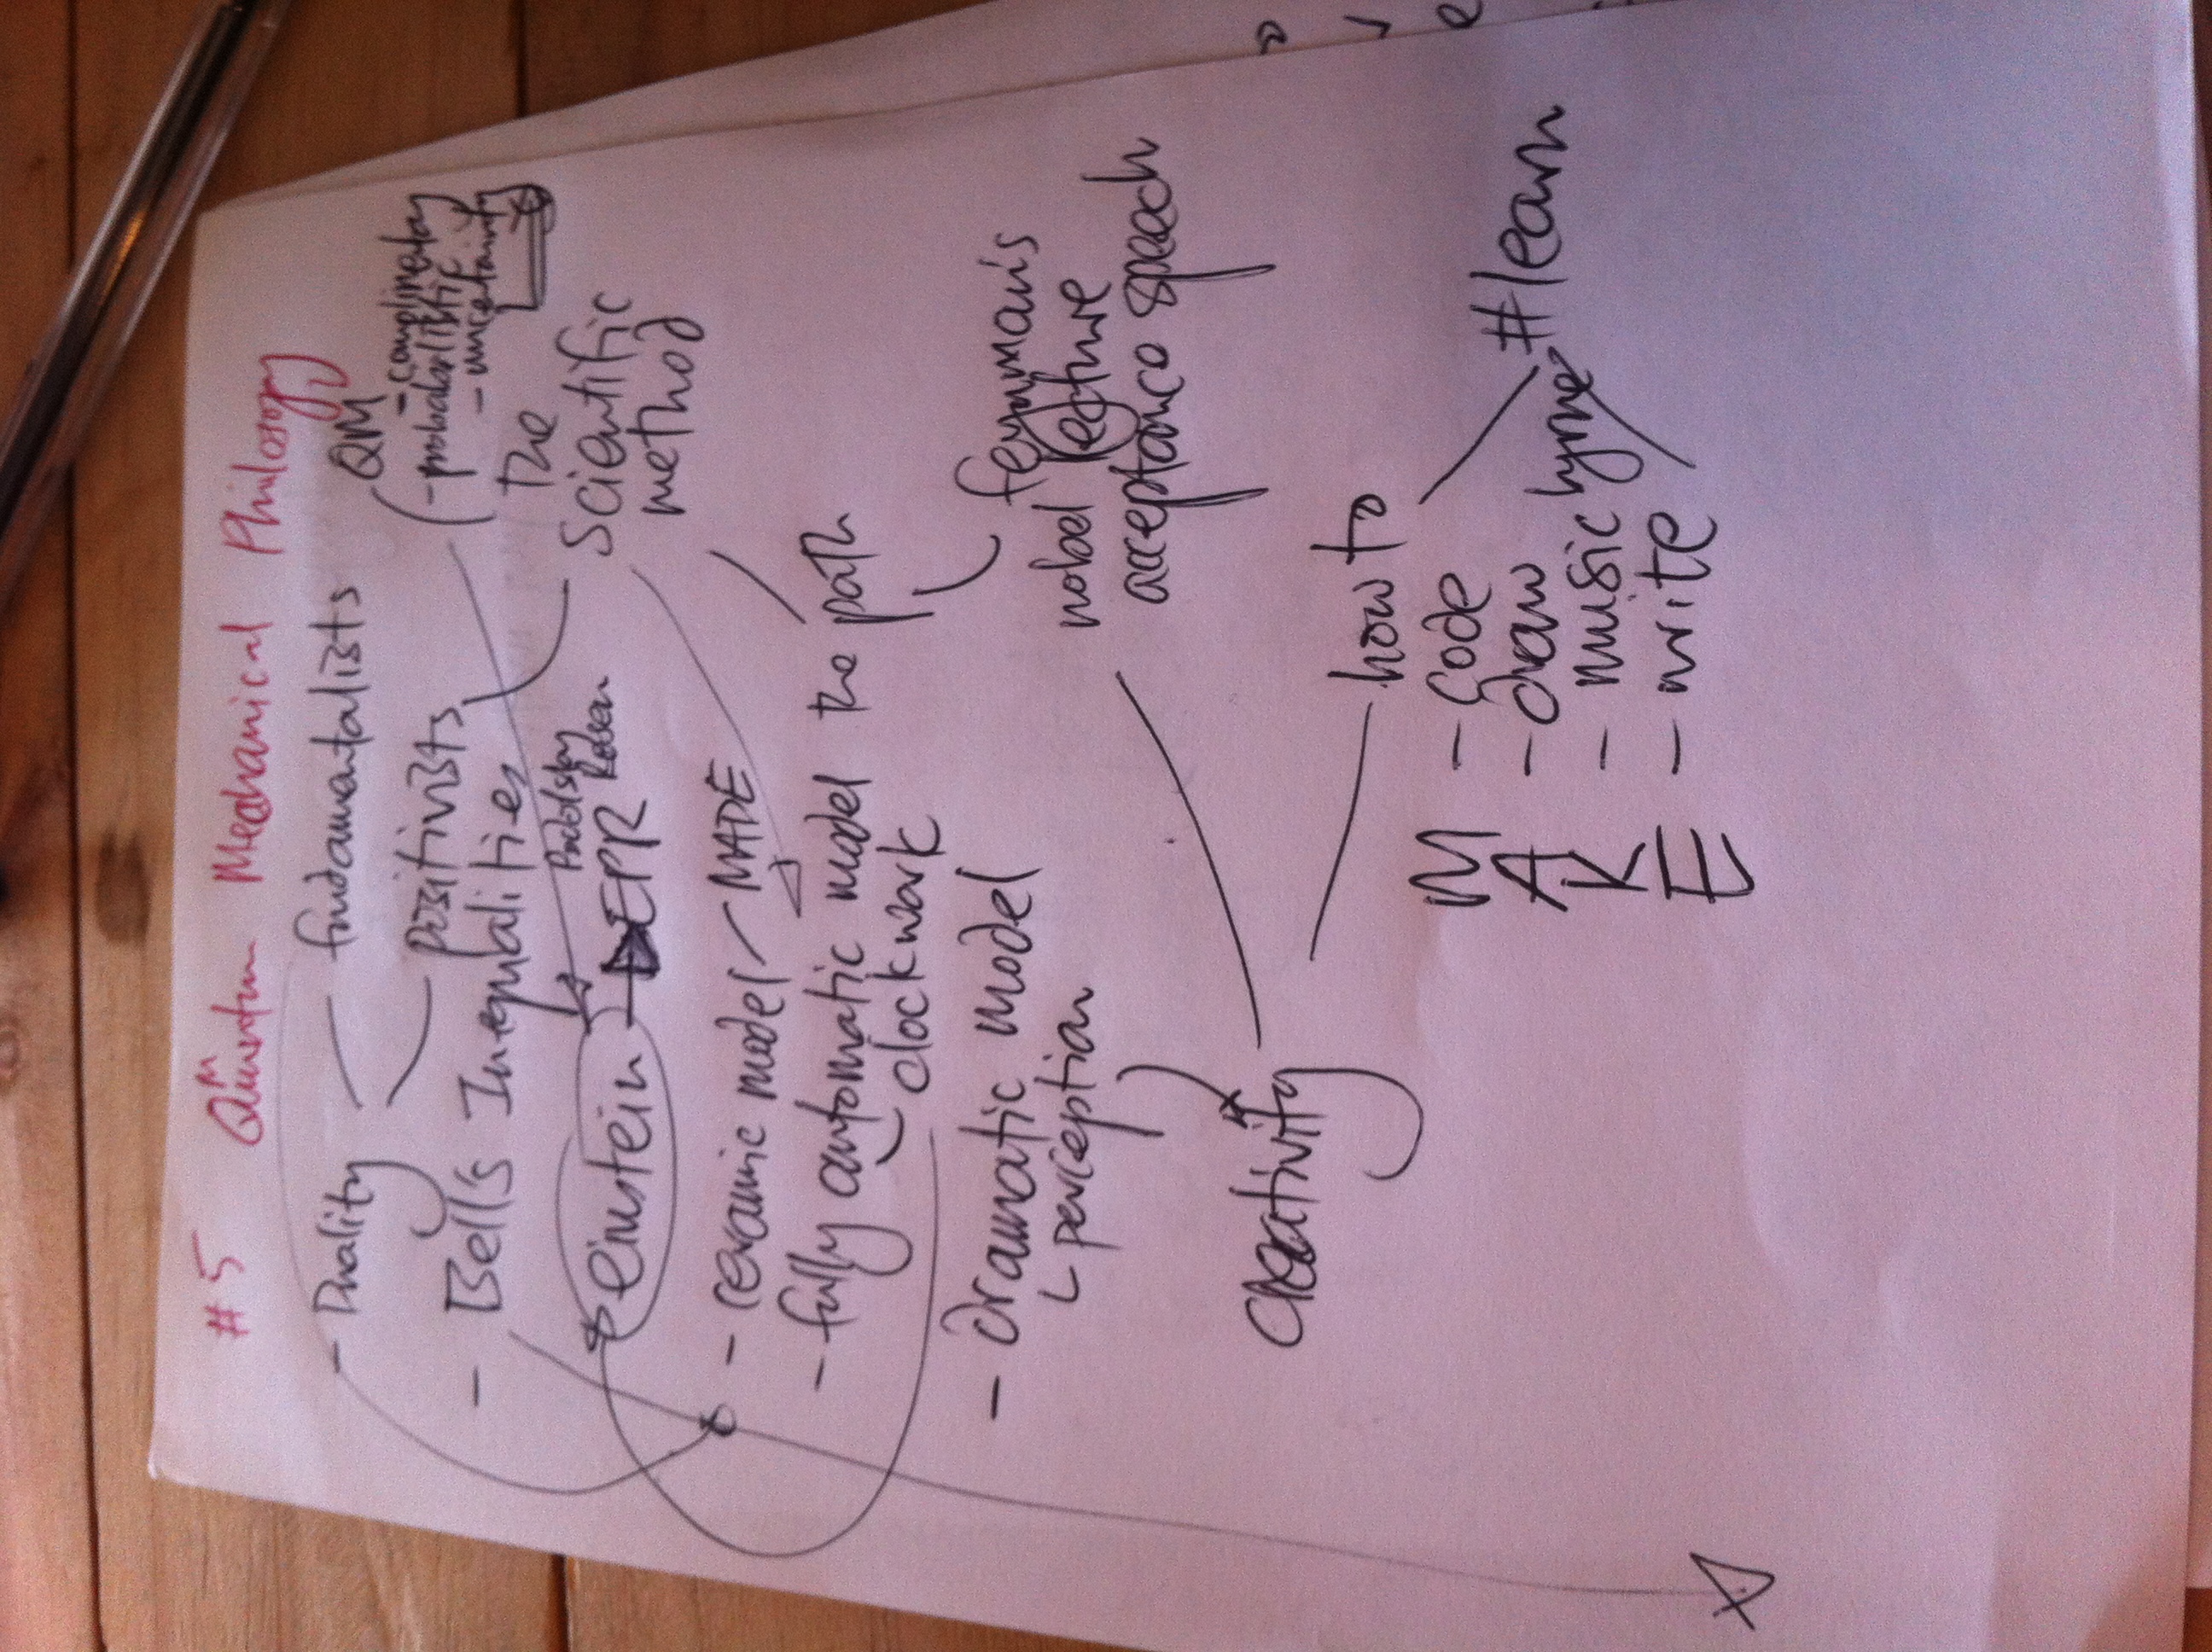 #5 Quantum Mechanical Philosophy
- Duality
fundamentalists
positivists
QM
- complimentary
- probabalistic
- uncertainity
- Bell's Inequalities
the
scientific
method
einstein
EPR
Podolsky
Rosen
- ceramic model
MADE
- fully automatic model
clockwork
the path
- dramatic model
perception
feynman's
nobel lecture
acceptance speech
creativity
how to
MAKE
- code
- draw
- music byrne
- write
#learn